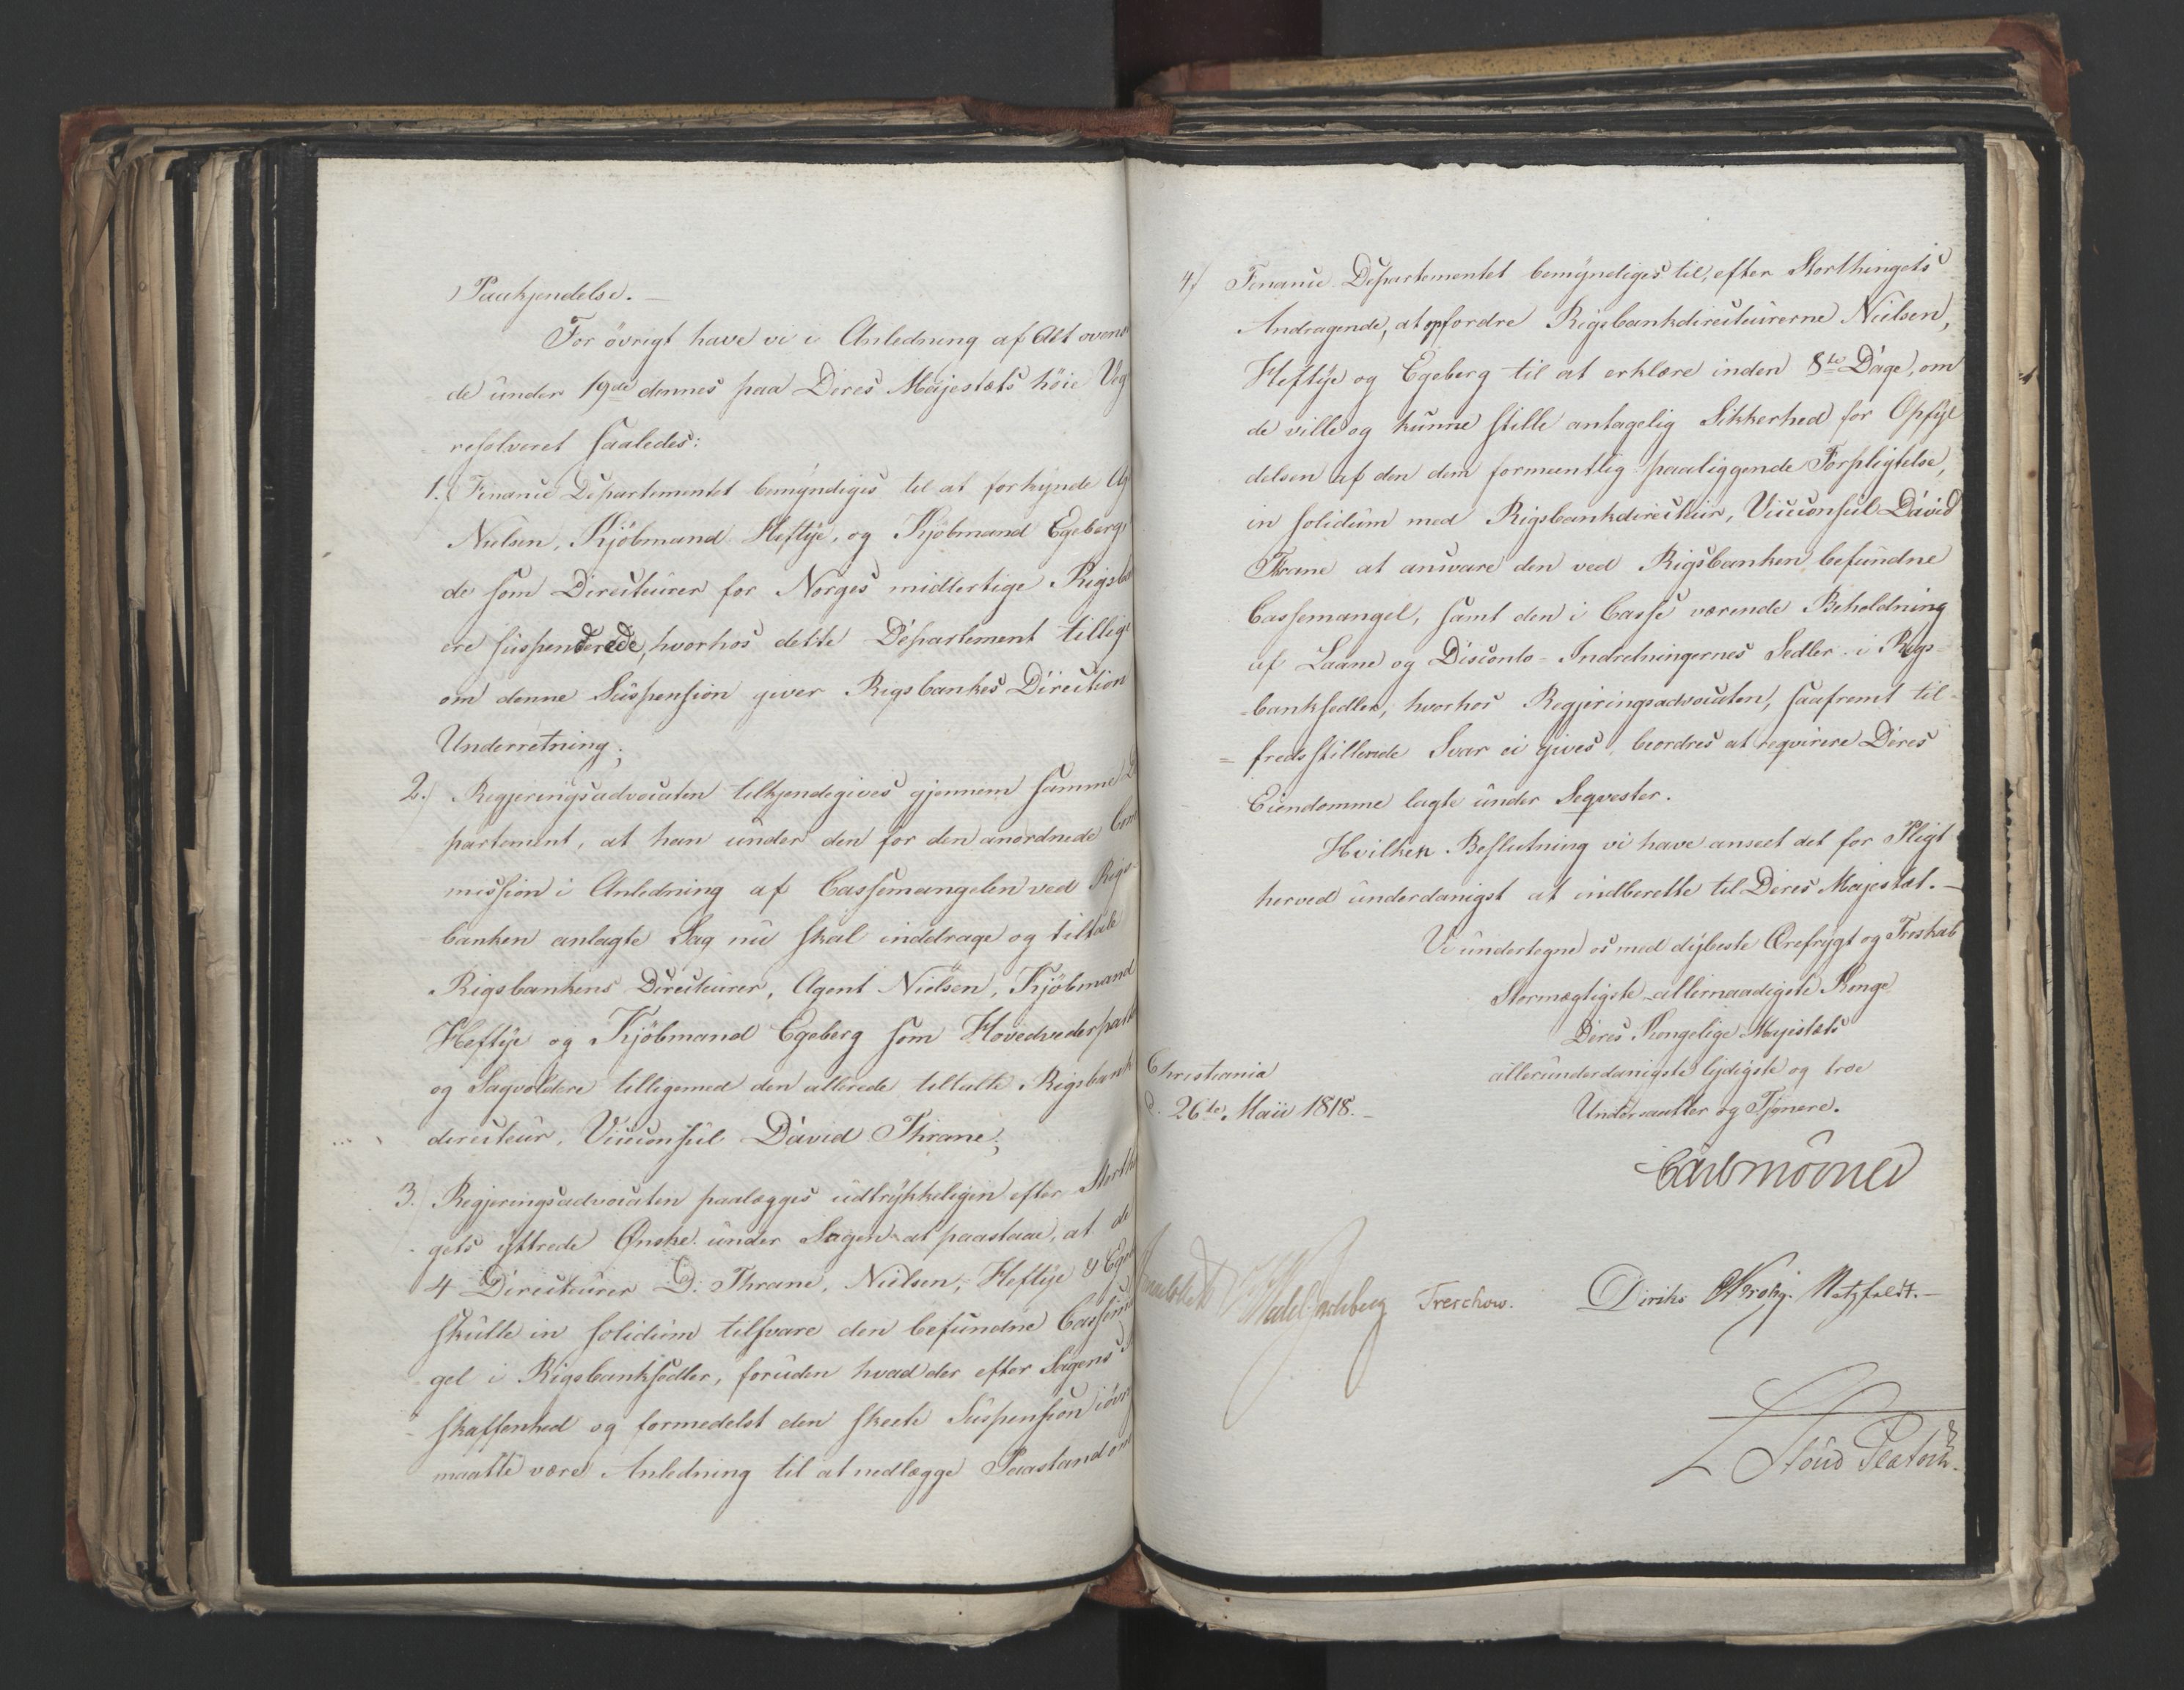 Paakjendelse. —
For övrigt have vi i Anledning af Alt oven
de under 19de dennes paa Deres Majestæts höie Veg
resolveret saaledes:
1. Finance Departementet bemyndiges til at forkynde Ag
Nielsen, Kjöbmand Heftye, og Kjöbmand Egeberg,
de som Directeurer for Norges midlertige Rigsba
ere suspenderede, hvorhos dette Departement tillige
om denne Suspension giver Rigsbankes Direction
Underretning;
2.) Regjeringsadvocaten tilkjendegives gjennem samme D
partement, at han under den for den anordnede Com
mission i Anledning af Cassemangelen ved Rigs-
banken anlagte Sag nu skal inddrage og tiltale
Rigsbankens Directeurer, Agent Nielsen, Kjöbmand
Heftye og Kjöbmand Egeberg som Hovedvederpart
og Sagvoldere tilligemed den allerede tiltalte Rigsbank
directeur, Viceconsul David Thrane;
3.) Regjeringsadvocaten paalægges udtrykkeligen efter Storthi
gets yttrede Ønske under Sagen at paastaae, at de
4 Directeurer D. Thrane, Nielsen, Heftye & Ege
skulle in solidum tilsvare den befundne Casse
gel i Rigsbanksedler, foruden hvad der efter Sagens
skaffenhed og formedelst den skeete Suspension iövr
maatte være Anledning til at nedlægge Paastand om
4) Finance Departementet bemyndiges til, efter Storthingets
Andragende, at opfordre Rigsbankdirecteurerne Nielsen,
Heftye og Egeberg til at erklære inden 8te Dage, om
de ville og kunne stille antagelig Sikkerhed for Opfyl
delsen af den dem formeentlig paaliggende Forpligtelse,
in solidum med Rigsbankdirecteur, Viceconsul David
Thrane at ansvare den ved Rigsbanken befundne
Cassemangel, samt den i Casse værende Beholdning
af Laane og Disconto-Indretningernes Sedler i Rigs-
-banksedler, hvorhos Regjeringsadvocaten, saafremt til-
= fredsstillende Svar ei gives, beordres at reqvirere Deres
Eiendomme lagte under Seqvester.
Hvilken Beslutning vi have anseet det for Pligt
herved underdanigst at indberette til Deres Majestæt. —
Vi undertegne os med dybeste Ærefrygt og Troskab
Stormægtigste allernaadigste Konge
Deres Kongelige Majestæts
allerunderdanigste lydigste og troe
Undersaatter og Tjenere.
Christiania
d. 26te Maii 1818. —
Carl Mörner
Wedel Jarlsberg Treschow. Diriks Krohg. Motzfeldt. —